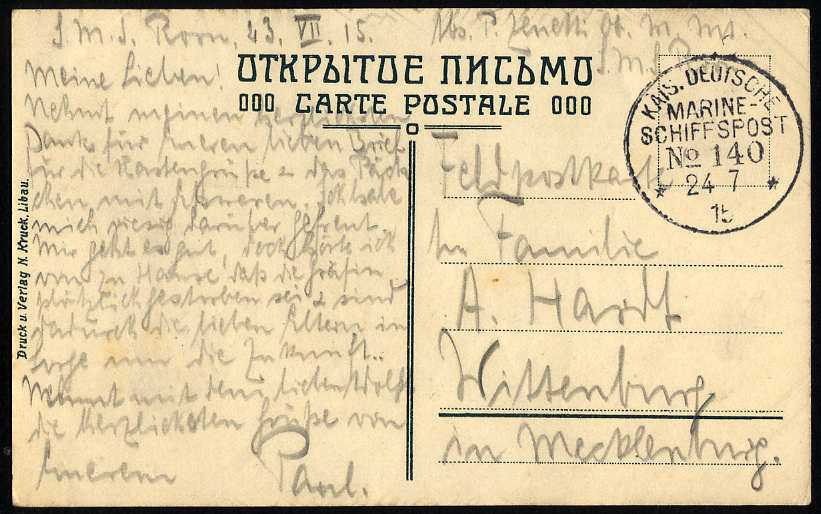 S.M.S. Roon, 23. VII. 15.
Abs. P. Zenetti Ob. M. Mt.
S.M.S.
ОТКРЫТОЕ ПИСЬМО
CARTE POSTALE
KAIS. DEUTSCHE
MARINE-
SCHIFFSPOST
No 140
24 7
15
Meine Lieben!
Nehmt meinen herzlichsten
Dank für Eueren lieben Brief
für die Kartengrüße & das Päck
chen mit Ich habe
mich riesig darüber gefreut.
Mir geht es gut, doch hörte ich
von zu Hause, daß die Gräfin
plötzlich gestorben sei & sind
dadurch die lieben Eltern in
Sorge um die Zukunft..
Nehmt mit dem lieben
die herzlichsten Grüße von
Euerem Paul.
Feldpostkarte
An Familie
A. Hardt
Wittenburg
in Mecklenburg.
Druck u. Verlag N. Kruck, Libau.